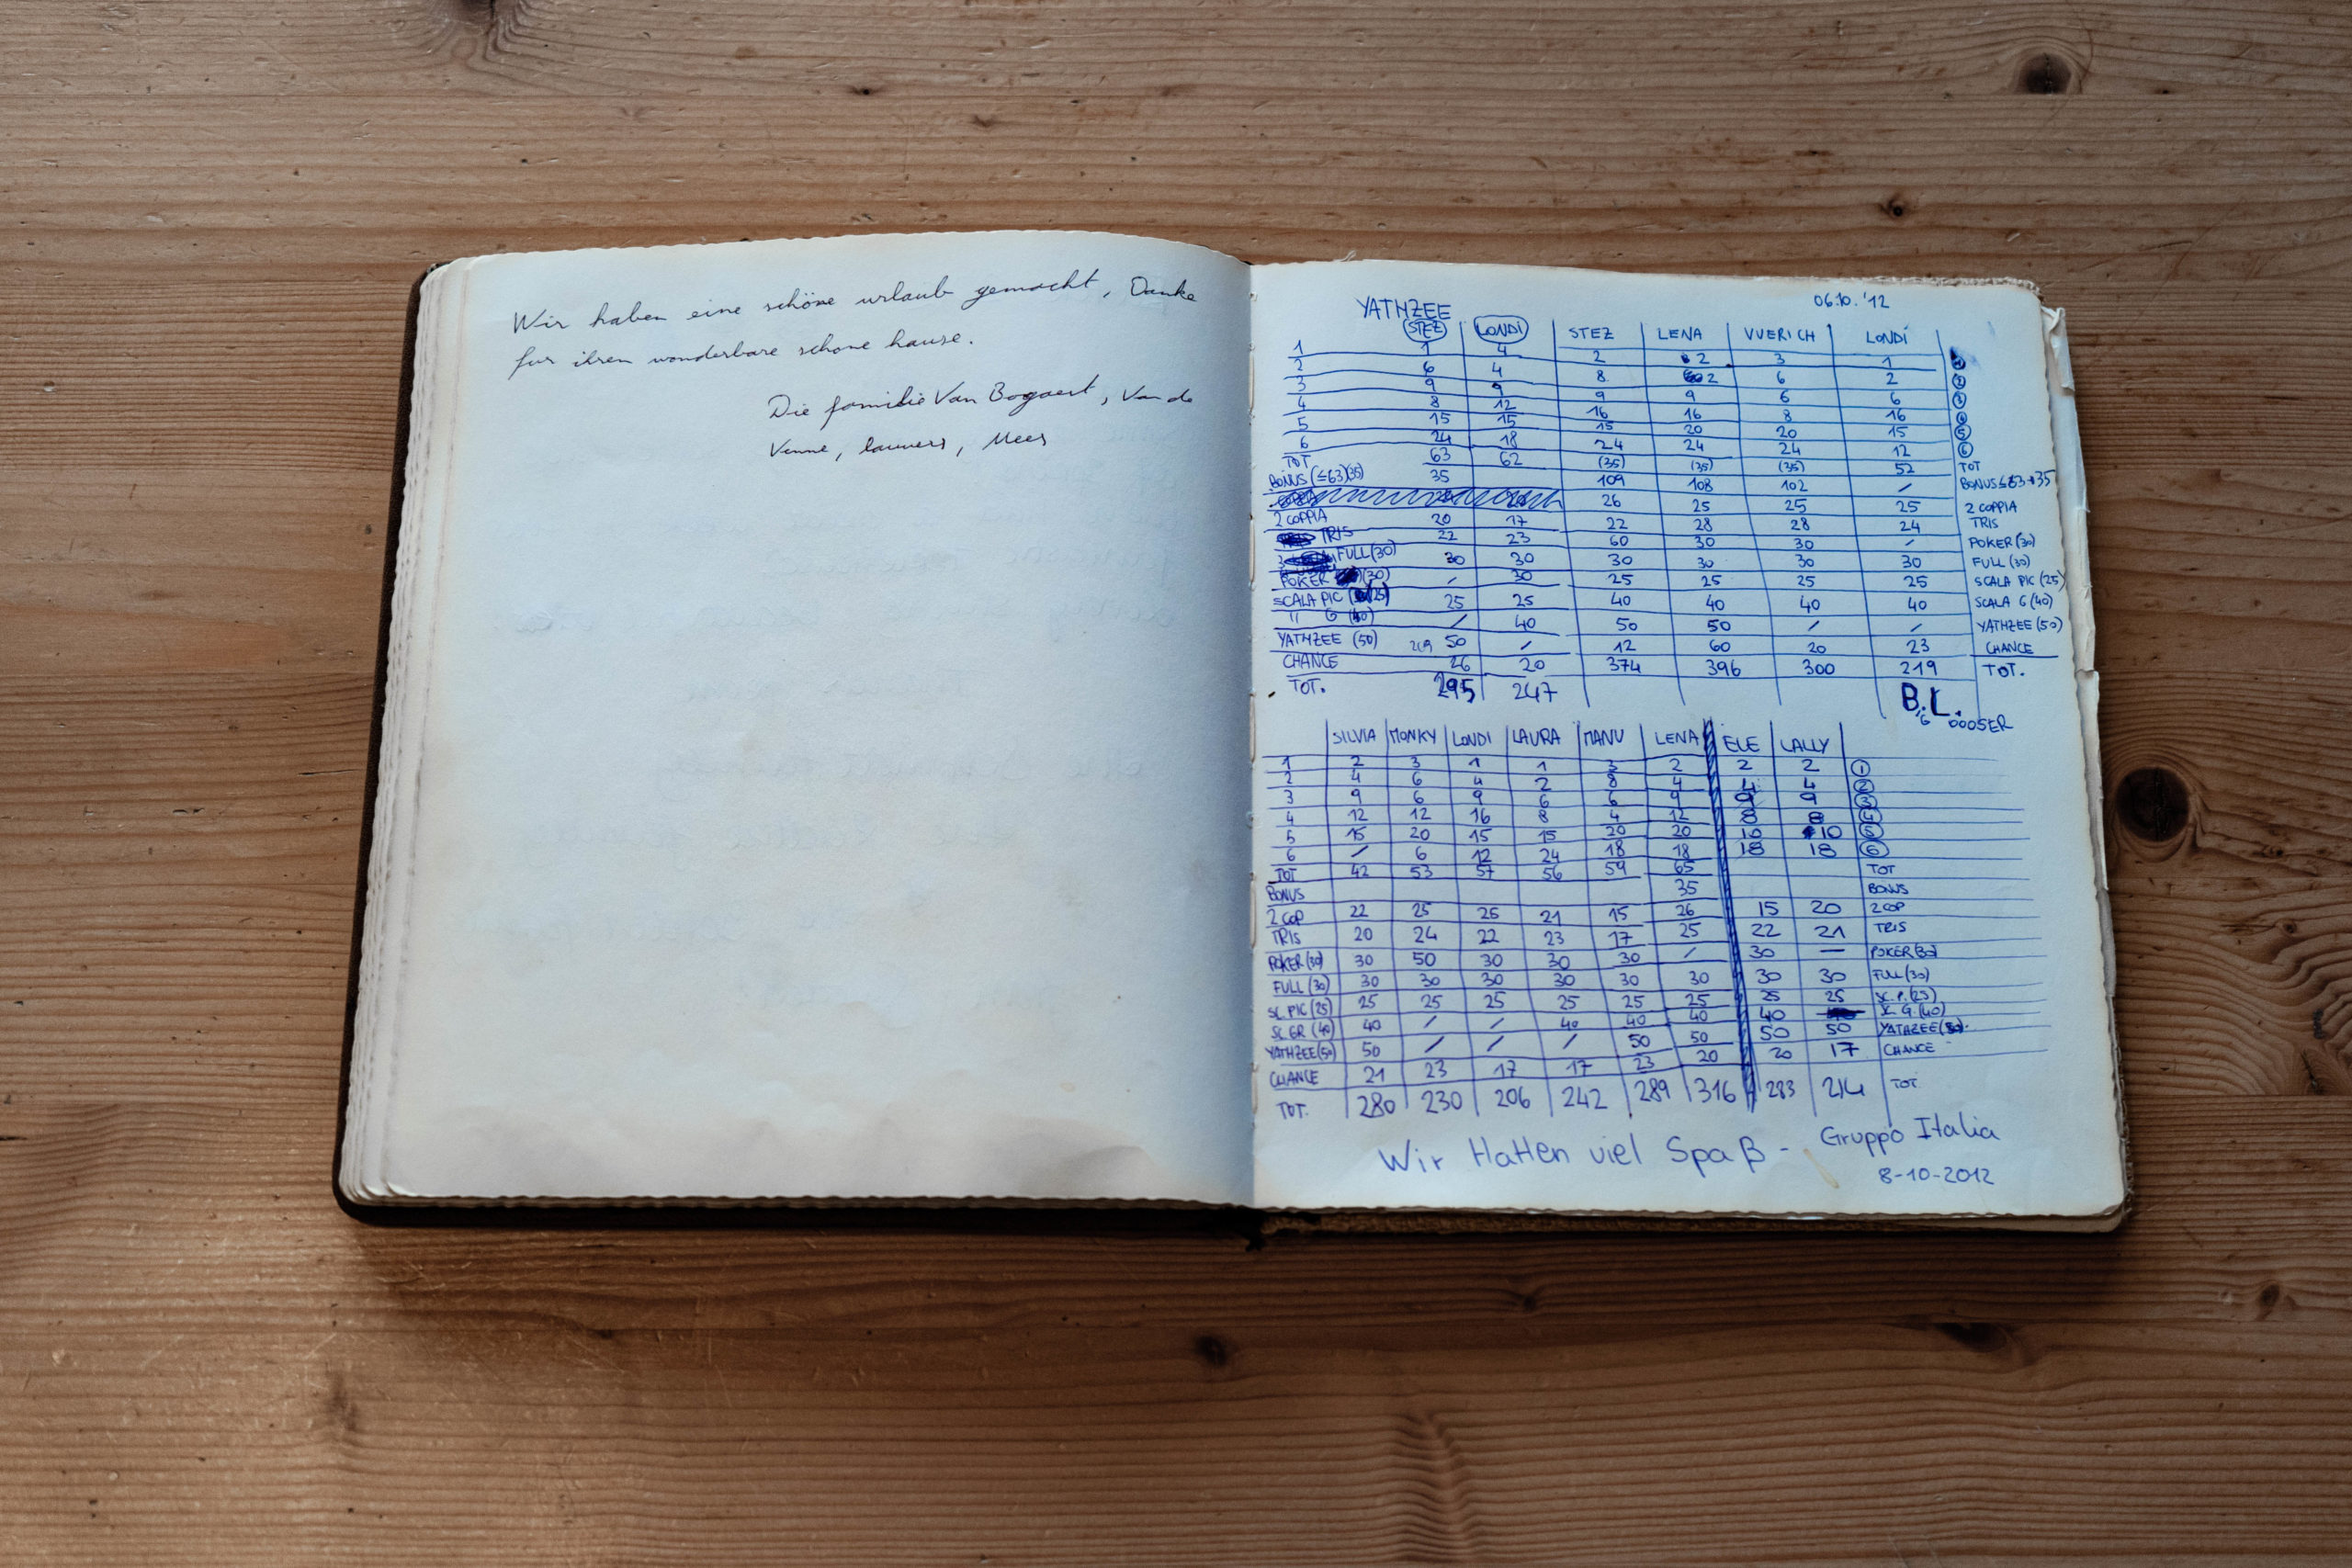 Wir haben eine schöne urlaub gemacht, Danke
fur ihren wonderbare schone hause.
Die familie Van Bogaert, Van de
Venne, lauwers, Mees
YATHZEE 06.10.'12
STEZ LONDI STEZ LENA VVERICH LONDI
1 1 4 2 2 3 1
2 6 4 8 2 6 2
3 9 9 9 9 6 6
4 8 12 16 16 8 16
5 15 15 15 20 20 15 5
6 24 18 24 24 24 12 6
TOT 63 62 (35) (35) (35) 52 TOT
BONUS (≤63)(35) 35 109 108 102 / BONUS≤63+35
26 25 25 25 2 COPPIA
2 COPPIA 20 17 22 28 28 24 TRIS
TRIS 22 23 60 30 30 / POKER (30)
FULL (30) 30 30 30 30 30 30 FULL (30)
POKER (30) / 30 25 25 25 25 SCALA PIC (25)
SCALA PIC (25) 25 25 40 40 40 40 SCALA G (40)
" G (40) / 40 50 50 / / YATHZEE (50)
YATHZEE (50) 269 50 / 12 60 20 23 CHANCE
CHANCE 26 20 374 396 300 219 TOT.
TOT. 295 247
B.L.
OOOSER
SILVIA MONKY LONDI LAURA MANU LENA ELE LALLY
1 2 3 1 1 3 2 2 2 1
2 4 6 4 2 8 4 4 4 2
3 9 6 9 6 6 9 9 9 3
4 12 12 16 8 4 12 8 8 4
5 15 20 15 15 20 20 10 10 5
6 / 6 12 24 18 18 18 18 6
TOT 42 53 57 56 59 65 TOT
BONUS 35 BONUS
2 COP 22 25 25 21 15 26 15 20 2 COP
TRIS 20 24 22 23 17 25 22 21 TRIS
POKER (30) 30 50 30 30 30 / 30 — POKER (30)
FULL (30) 30 30 30 30 30 30 30 30 FULL (30)
SC. PIC (25) 25 25 25 25 25 25 25 25 SC. P. (25)
SC. GR (40) 40 / / 40 40 40 40 SC. G. (40)
YATHZEE (50) 50 / / / 50 50 50 50 YATHZEE (50)
CHANCE 21 23 17 17 23 20 20 17 CHANCE
TOT. 280 230 206 242 289 316 283 214 TOT
Wir Hatten viel Spaß - Gruppo Italia
8-10-2012